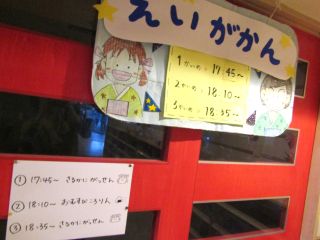 えいがかん
1かいめ 17:45〜
2かいめ 18:10〜
3かいめ 18:35〜
① 17:45〜 さるかにがっせん
② 18:10〜 おむすびころりん
③ 18:35〜 さるかにがっせん